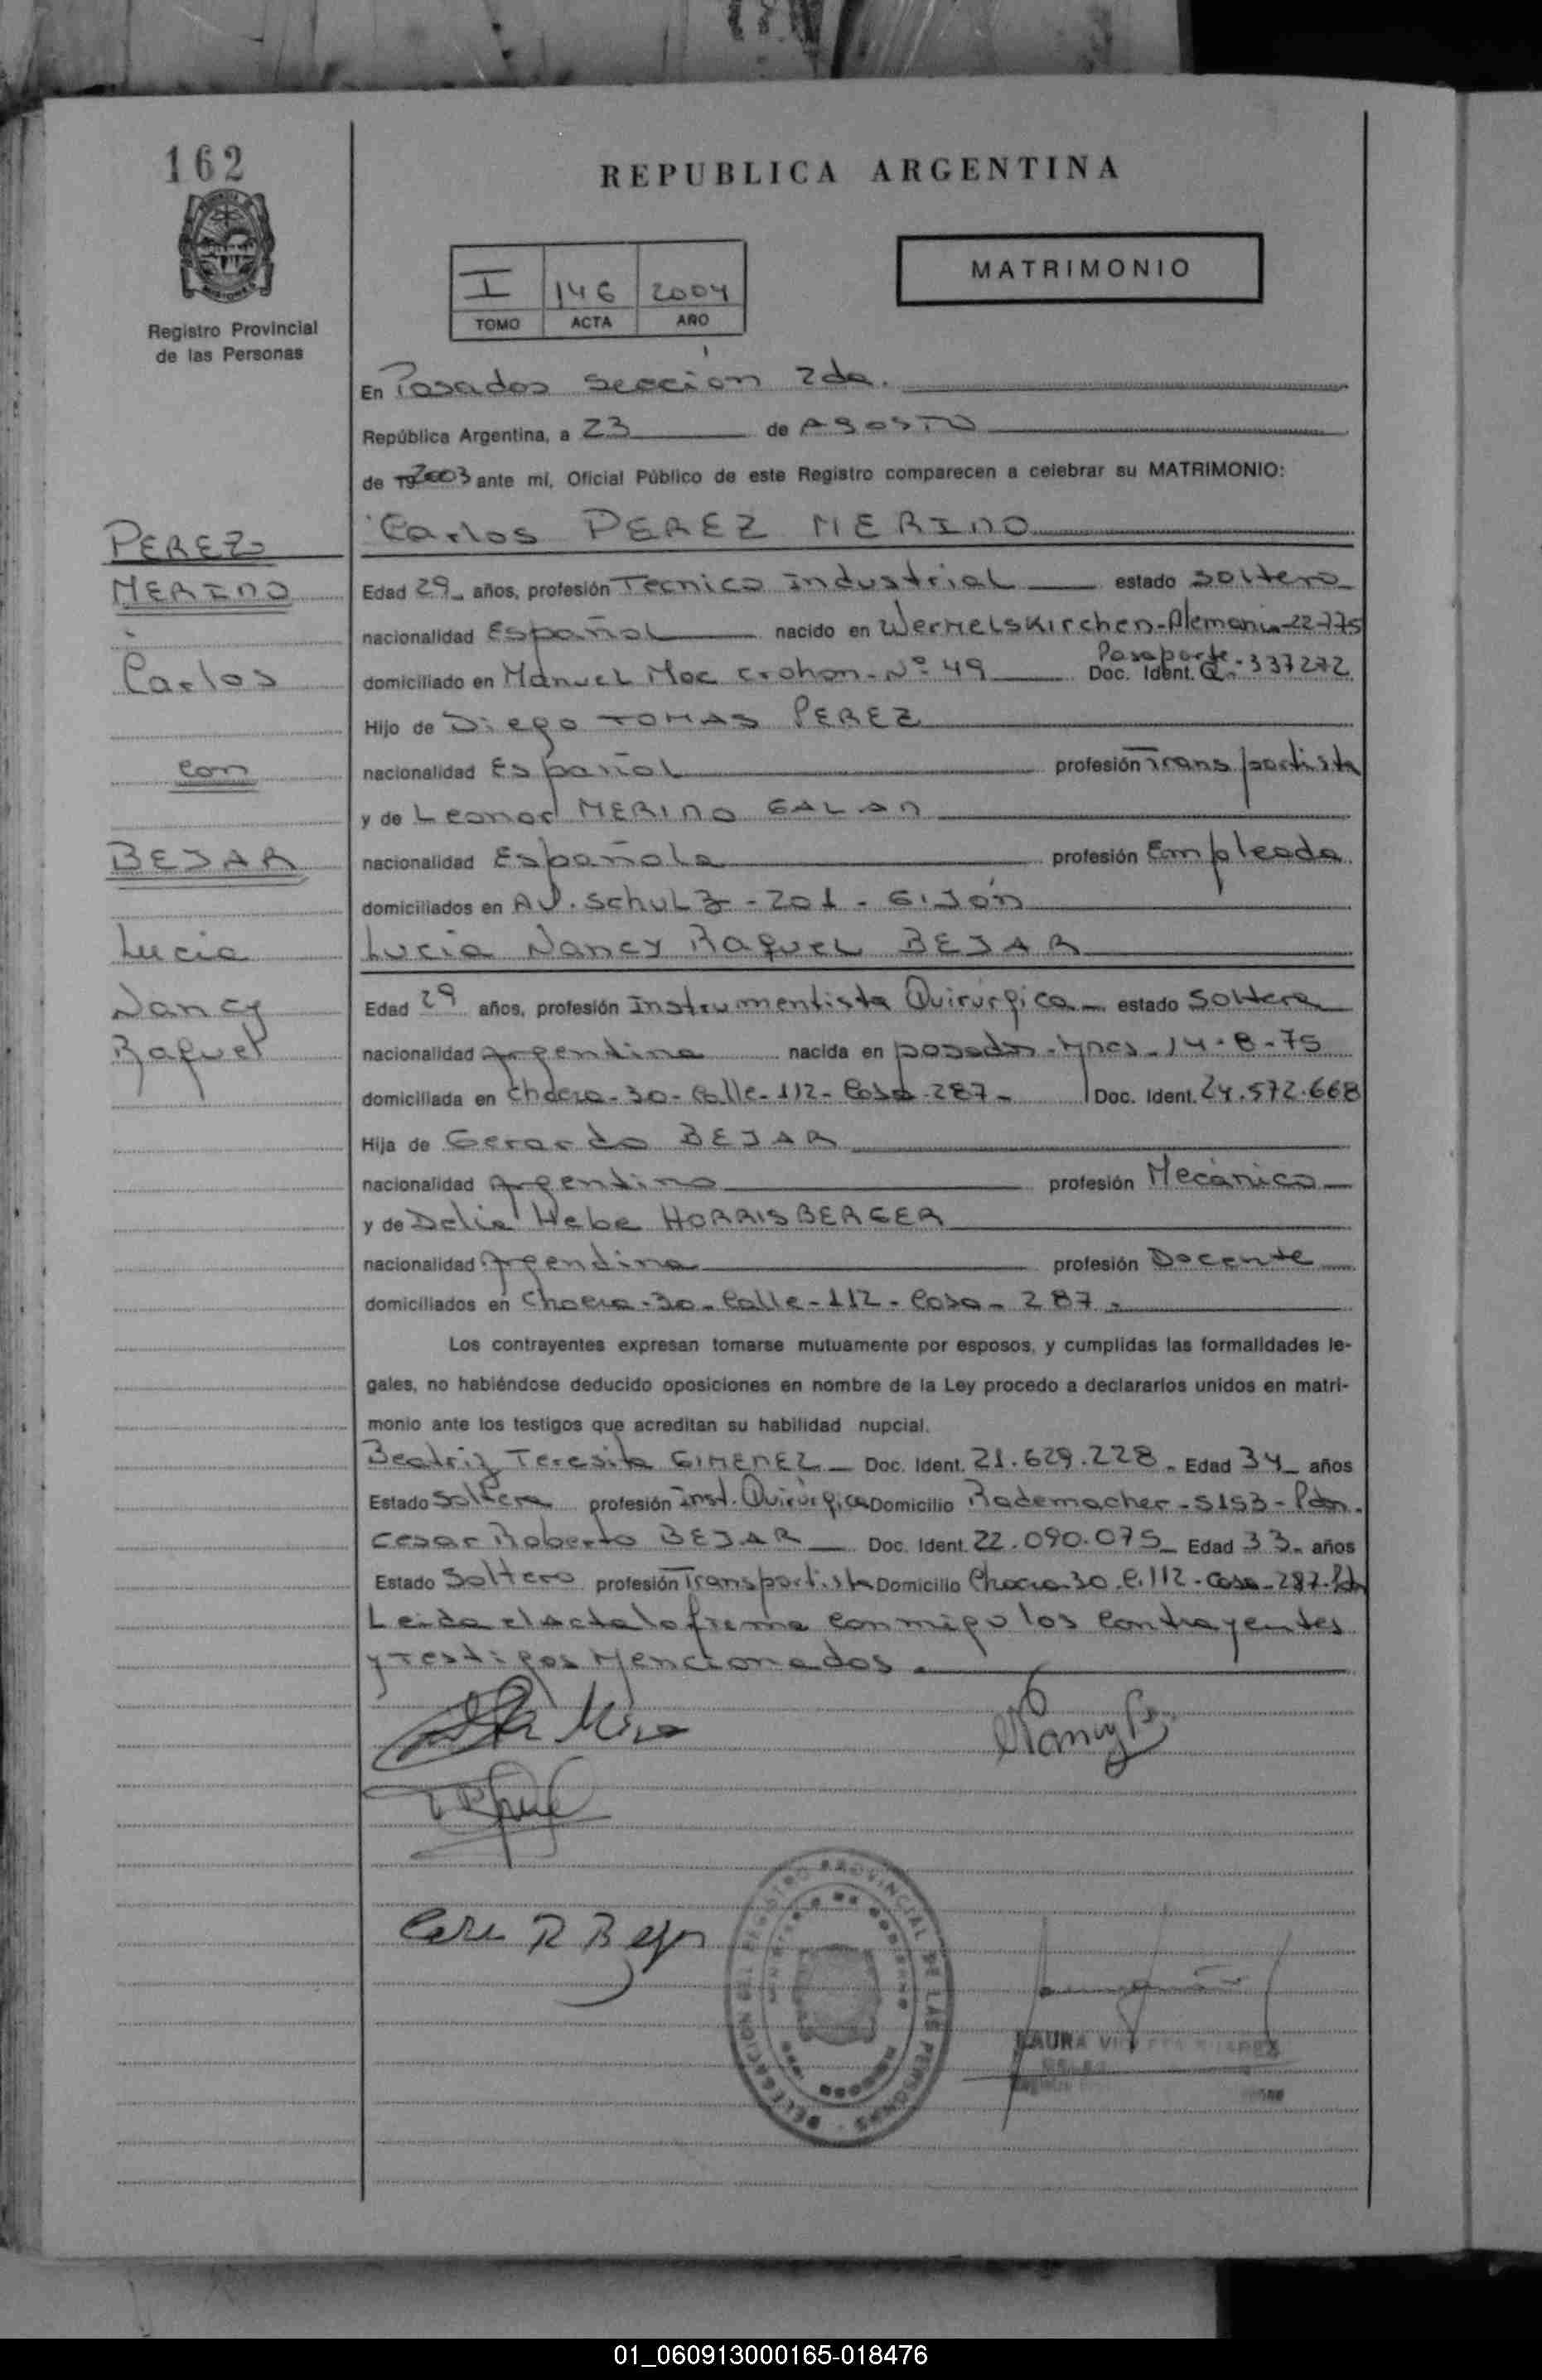 162
REPUBLICA ARGENTINA
MATRIMONIO
I 146 2004
TOMO ACTA AÑO
Registro Provincial
de las Personas
En Posadas Sección 2da.
República Argentina, a 23 de Agosto
de 2003 ante mí, Oficial Público de este Registro comparecen a celebrar su MATRIMONIO:
Carlos PEREZ MERINO
PEREZ
MERINO
Carlos
con
BEJAR
Lucia
Nancy
Raquel
Edad 29 años, profesión Tecnico industrial estado soltero
nacionalidad Español nacido en Wermelskirchen-Alemania-22-7-75
domiciliado en Manuel Mac Crohon-Nº 49 Pasaporte Doc. Ident. Q-337272
Hijo de Diego TOMAS PEREZ
nacionalidad Español profesión Transportista
y de Leonor MERINO GALAN
nacionalidad Española profesión Empleada
domiciliados en AV. Schulz-201-Gijón
Lucia Nancy Raquel BEJAR
Edad 29 años, profesión Instrumentista Quirúrgica estado Soltera
nacionalidad Argentina nacida en posadas-Mnes-14-8-75
domiciliada en Chacra-30-Calle-112-Casa-287- Doc. Ident. 24.572.668
Hija de Gerardo BEJAR
nacionalidad Argentino profesión Mecánico
y de Delia Hebe HORRISBERGER
nacionalidad Argentina profesión Docente
domiciliados en Chacra-30-Calle-112-Casa-287-
Los contrayentes expresan tomarse mutuamente por esposos, y cumplidas las formalidades le-
gales, no habiéndose deducido oposiciones en nombre de la Ley procedo a declararlos unidos en matri-
monio ante los testigos que acreditan su habilidad nupcial.
Beatriz Teresita GIMENEZ Doc. Ident. 21.629.228 Edad 34 años
Estado Soltera profesión Inst. Quirúrgica Domicilio Rademacher-5153-Pdas.
Cesar Roberto BEJAR Doc. Ident. 22.090.075 Edad 33 años
Estado Soltero profesión Transportista Domicilio Chacra 30 C.112-Casa-287-Pdas
Leida el Acta la firma conmigo los Contrayentes
y Testigos Mencionados.
Nancy B.
Cesar R Bejar
DELEGACION DEL REGISTRO PROVINCIAL DE LAS PERSONAS
LAURA
01_060913000165-018476